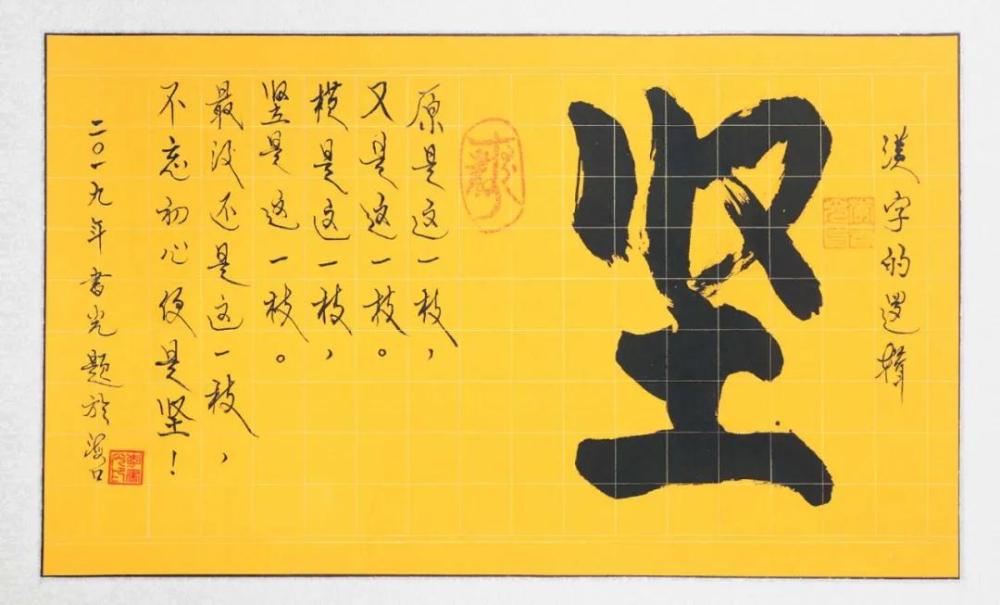 汉字的逻辑
坚
原是这一枝，
又是这一枝。
横是这一枝，
竖是这一枝。
最后还是这一枝，
不忘初心便是坚！
二〇一九年书光题于海口